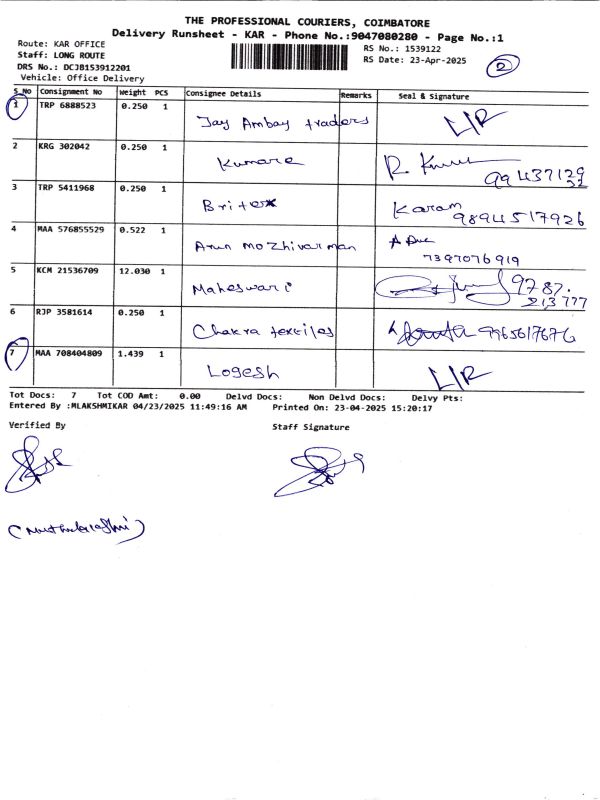 THE PROFESSIONAL COURIERS, COIMBATORE
Delivery Runsheet - KAR - Phone No.:9047080280 - Page No.:1
Route: KAR OFFICE
Staff: LONG ROUTE
DRS No.: DCJB153912201
Vehicle: Office Delivery
RS No.: 1539122
RS Date: 23-Apr-2025
2
S_No Consignment No Weight PCS Consignee Details Remarks Seal & Signature
1 TRP 6888523 0.250 1 Jay Ambay traders L/R
2 KRG 302042 0.250 1 Kumara R. 
3 TRP 5411968 0.250 1 Britex Karam 9894517926
4 MAA 576855529 0.522 1 Arun mozhivarman 7397076919
5 KCM 21536709 12.030 1 Maheswari 9787. 213777
6 RJP 3581614 0.250 1 Chakra textiles 9965617676
7 MAA 708404809 1.439 1 Logesh L/R
Tot Docs: 7 Tot COD Amt: 0.00 Delvd Docs: Non Delvd Docs: Delvy Pts:
Entered By :MLAKSHMIKAR 04/23/2025 11:49:16 AM Printed On: 23-04-2025 15:20:17
Verified By Staff Signature